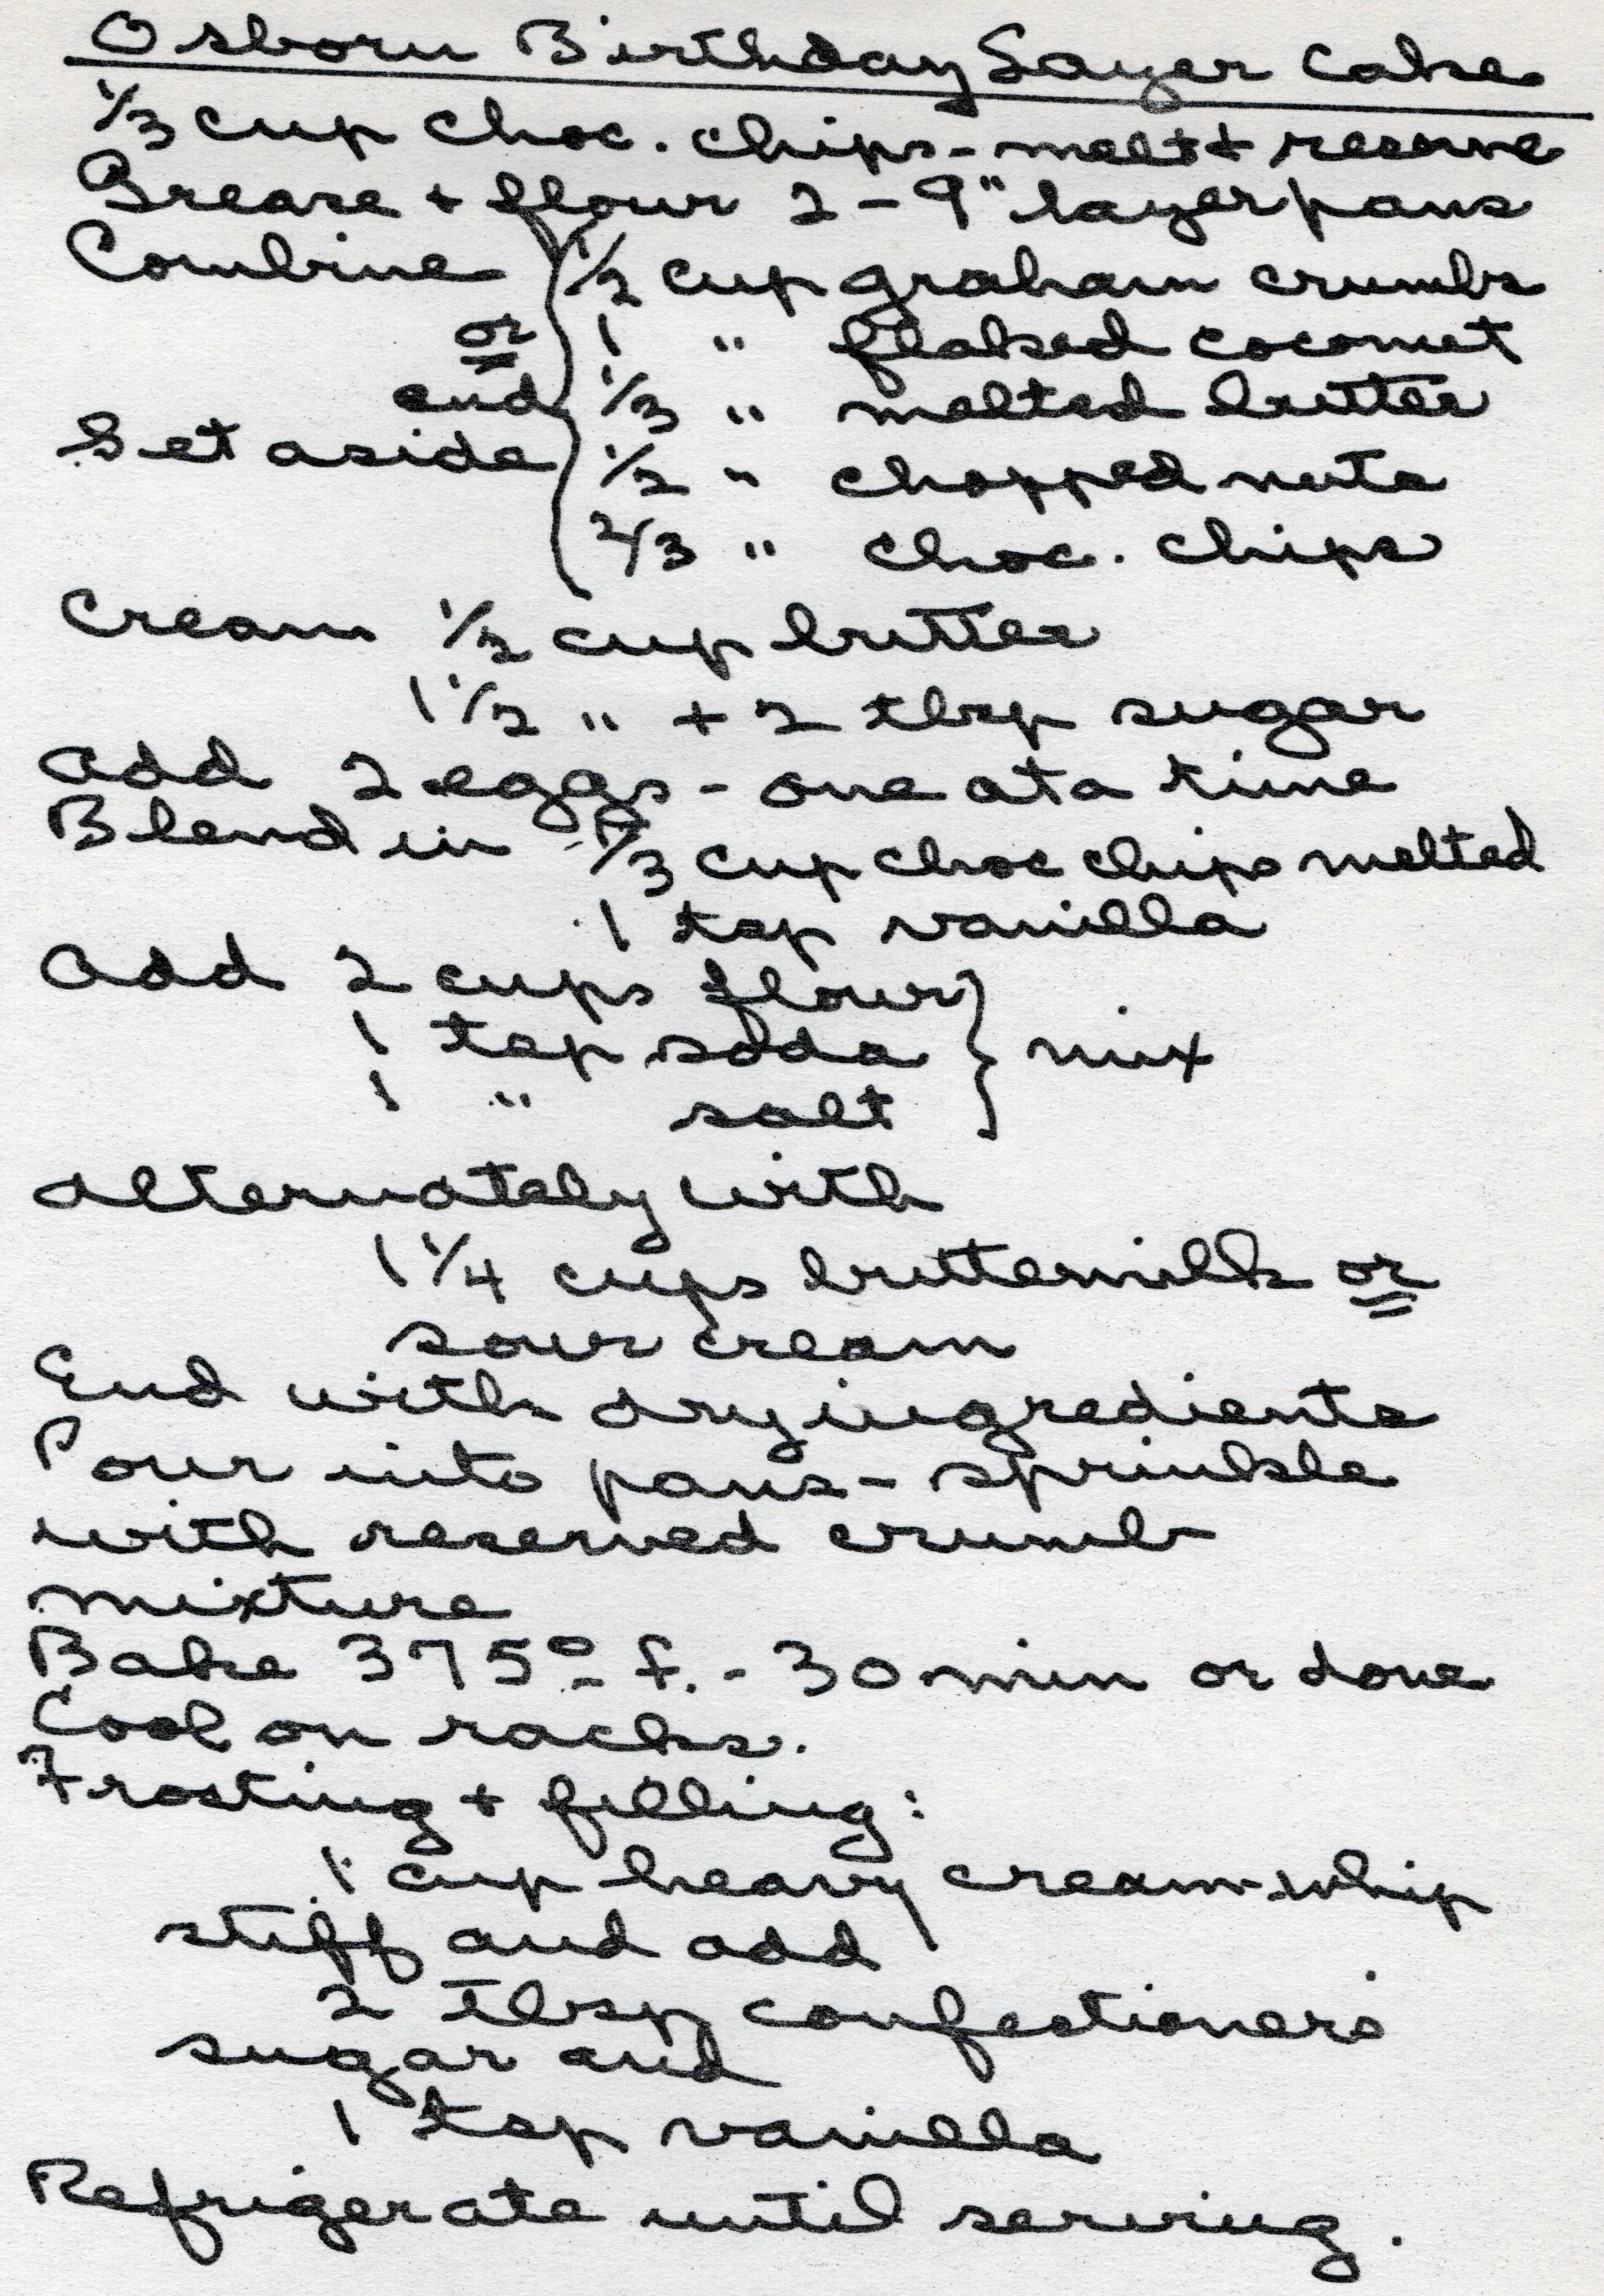 Osborn Birthday Layer Cake
1/3 cup choc. chips - melt + reserve
Grease + flour 2 - 9" layer pans
Combine 1/2 cup graham crumbs
or 1 " flaked coconut
and 1/3 " melted butter
Set aside 1/2 " chopped nuts
2/3 " choc. chips
Cream 1/2 cup butter
1 1/2 " + 2 tbsp sugar
Add 2 eggs - one at a time
Blend in 1/3 cup choc chips melted
1 tsp vanilla
Add 2 cups flour
1 tsp soda } mix
1 " salt
alternately with
1 1/4 cups buttermilk or
sour cream
End with dry ingredients
Pour into pans - sprinkle
with reserved crumb
mixture
Bake 375° f. - 30 min or done
Cool on racks.
Frosting + filling:
1 cup heavy cream - whip
stiff and add
2 Tbsp confectioners'
sugar and
1 tsp vanilla
Refrigerate until serving.